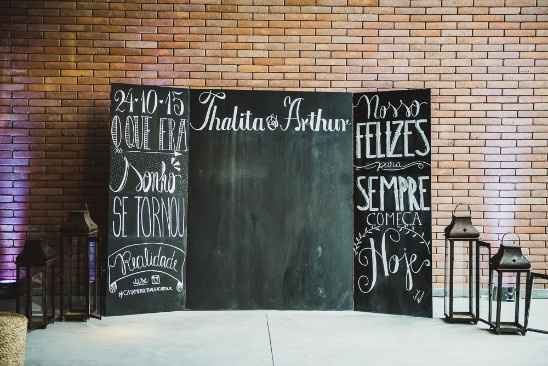 24·10·15
O QUE ERA
Sonho
SE TORNOU
Realidade
Thalita & Arthur
Nosso
FELIZES
para
SEMPRE
COMEÇA
Hoje